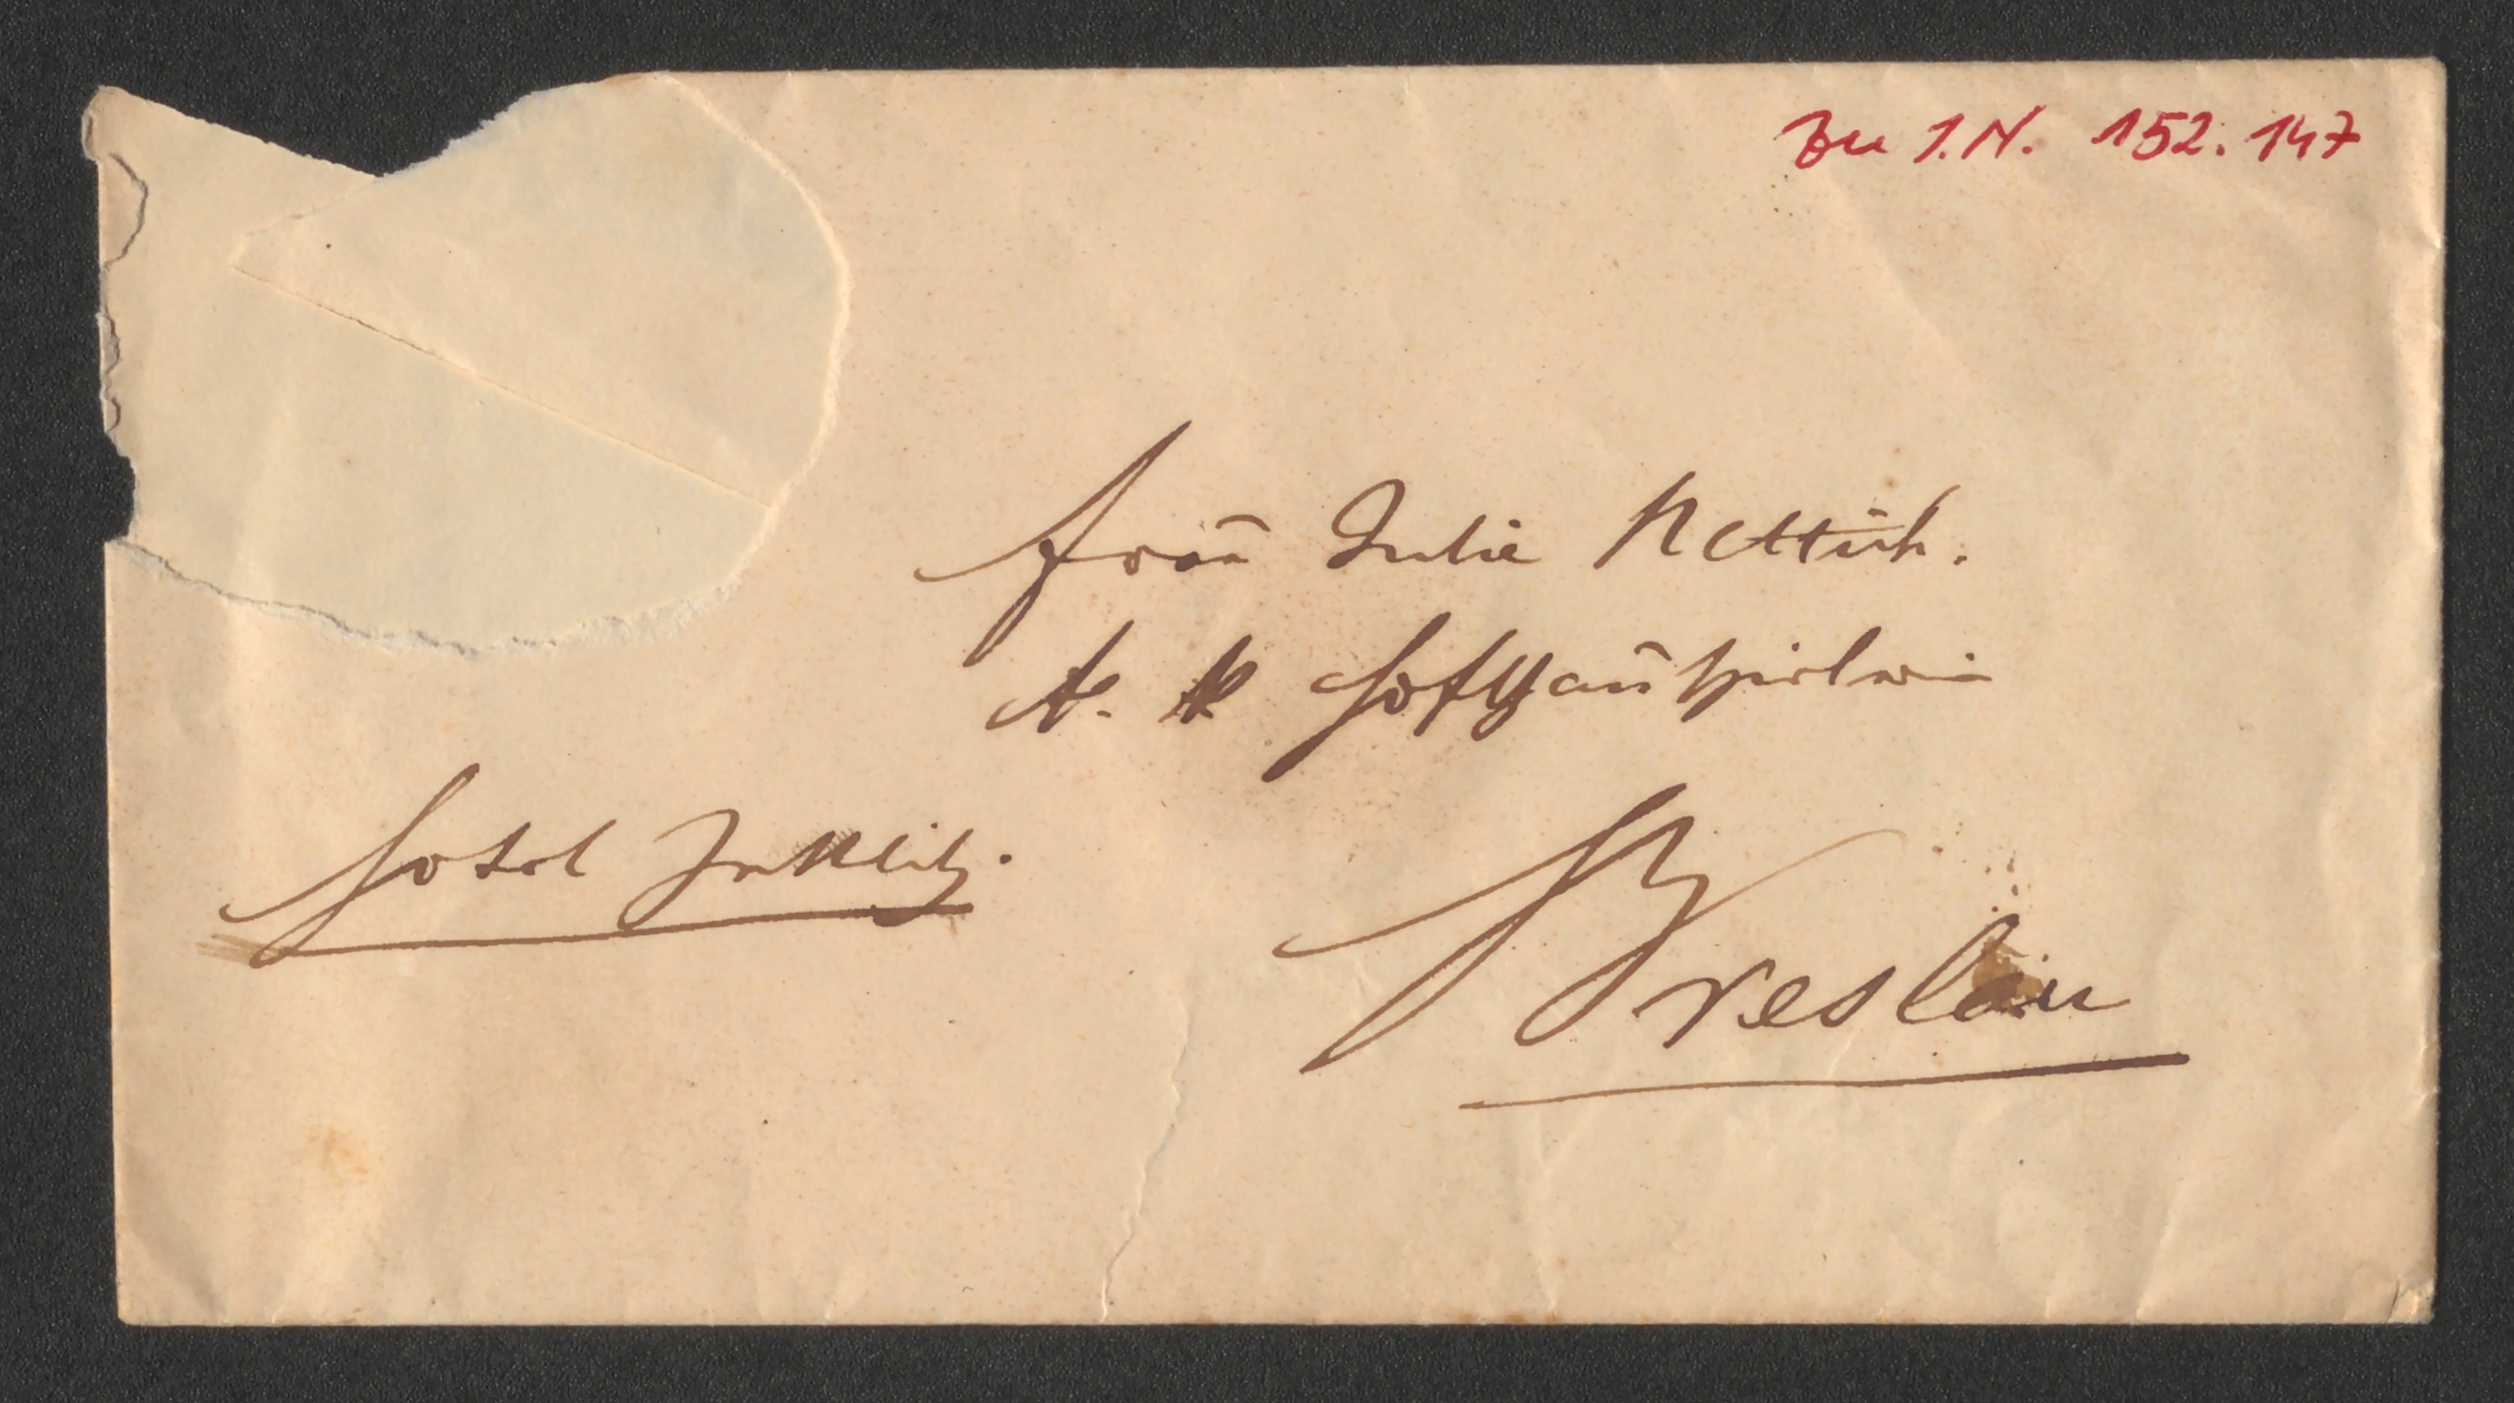 Zu I.N. 152.147
Frau Julie Rettich.
k. k Hofschauspielerin
Hotel Zettlitz.
Breslau